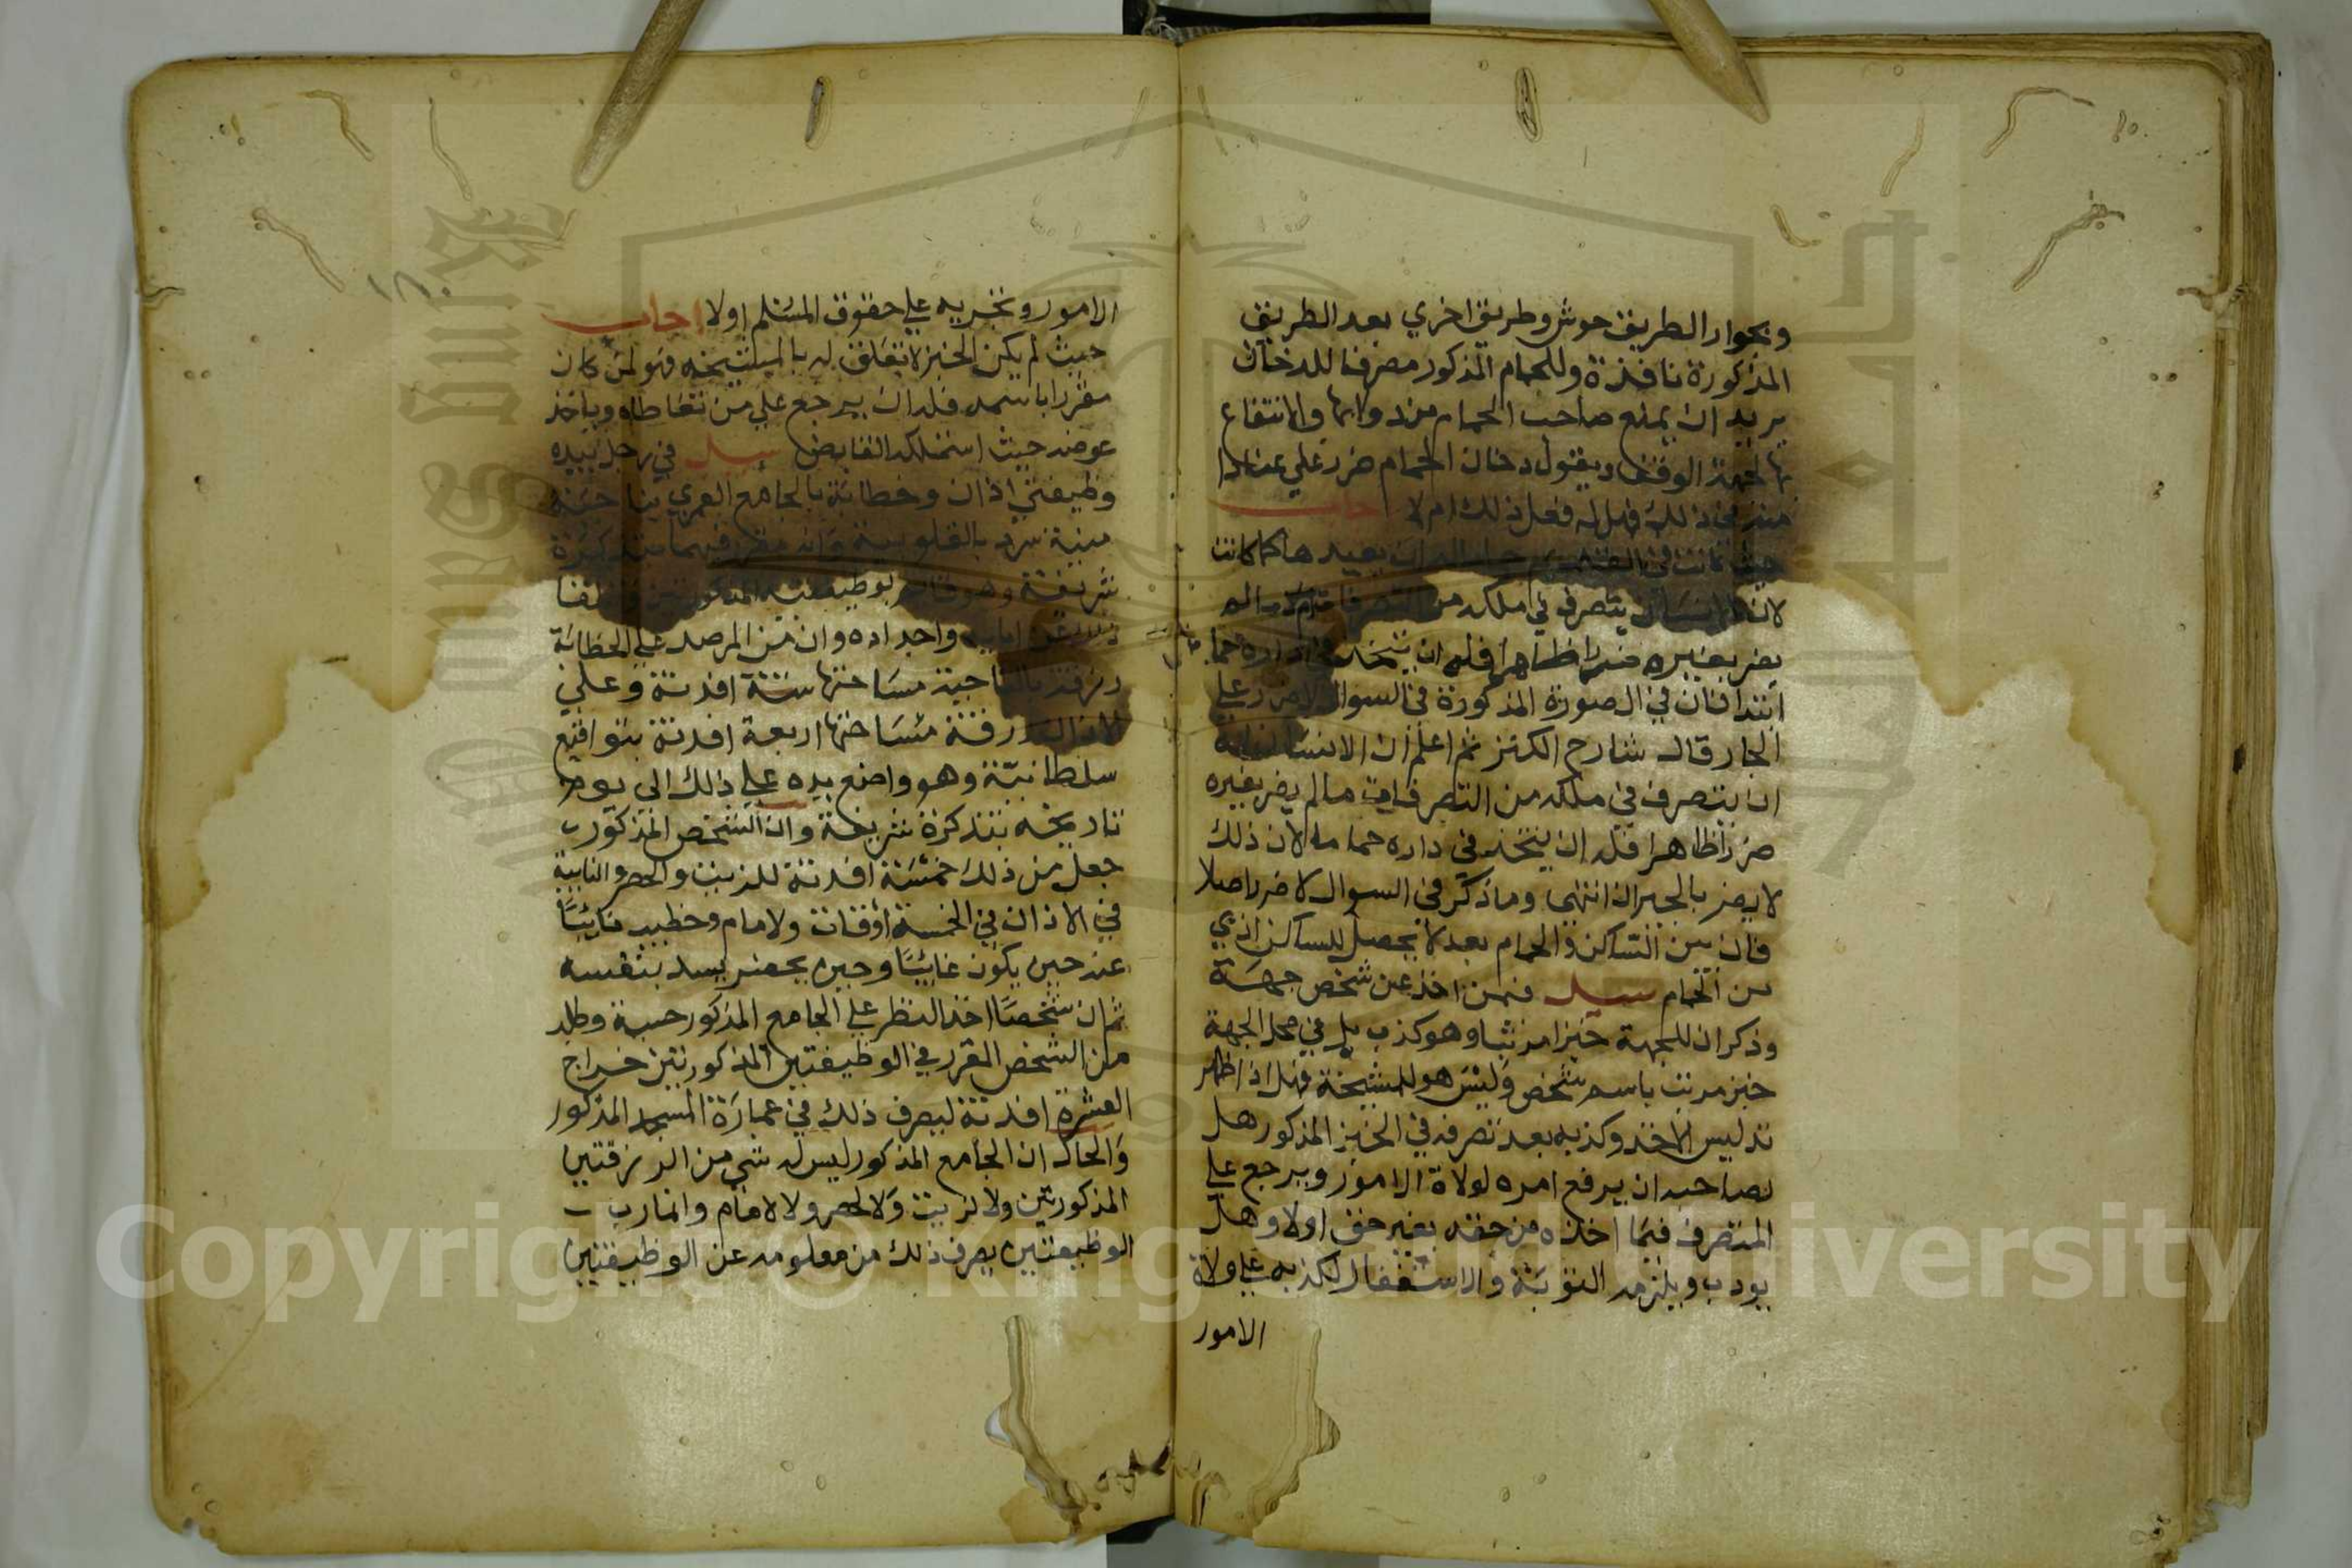 وبجوار الطريق حوش وطريق اخري بعد الطريق
المذكورة نافذة وللحمام المذكور مصرفا للدخان
يريد ان يمنع صاحب الحمام من دوانها والانتفاع
بها لجهة الوقف ويقول دخان الحمام ضرر علي عندما
من ذلك فهل له فعل ذلك ام لا اجاب
حيث كانت في القديم جاز له ان يعيدها كما كانت
لان الانسان يتصرف في ملكه من التصرفات ما لم
يضر بغيره ضررا ظاهرا فله ان يتخذ في داره حما
ابتدا فان في الصورة المذكورة في السوال لا ضرر علي
الجار قال شارح الكنز ثم اعلم ان الانسان له
ان يتصرف في ملكه من التصرفات ما لم يضر بغيره
ضررا ظاهرا فله ان يتخذ في داره حماما لان ذلك
لا يضر بالجيران انتهى وما ذكر في السوال لا ضررا صلا
فان بين الساكن والحمام بعد لا يحصل للساكن اذي
من الحمام سيل فمن اخذ عن شخص جهة
وذكر ان للجهة خبزا مرتبا وهو كذب بل في محل الجهة
خبز مرتب باسم شخص وليس هو للمشيخة فهل اذا ظهر
تدليس الاخذ وكذبه بعد تصرفه في الخبز المذكور هل
لصاحبه ان يرفع امره لولاة الامور ويرجع علي
المتصرف فيما اخذه من حقه بغير حق اولا وهل
يودب ويلزمه التوبة والاستغفار لكذبه علي ولاة
الامور
الامور وتجريه علي حقوق المسلم اولا اجاب
حيث لم يكن الخبز لا تعلق له بالمشيخه فهو لمن كان
مقررا باسمه فله ان يرجع علي من تعاطاه وياخذ
عوضه حيث استملكه القابض سيل في رجل بيده
وظيفتي اذان وخطابة بالجامع العمري بناحية
منية بالقلوبية وانه مقرر فيهما بتذكرة
شريفة وهو قائم بوظيفته
عن ابايه واجداده وان من المرصد علي الخطابة
رزقة بالناحية مساحتها ستة افدنة وعلي
الاذان رزقة مساحتها اربعة افدنة بتواقيع
سلطانية وهو واضع يده علي ذلك الي يوم
تاريخه بتذكرة شريفة وان الشخص المذكور
جعل من ذلك خمسة افدنة للزيت والحصر والنايب
في الاذان في الخمسة اوقات ولامام وخطيب نايبا
عنه حين يكون غايبا وحين يحضر يسد بنفسه
ثم ان شخصا اخذ النظر علي الجامع المذكور حسبة وطلب
من الشخص المقرر في الوظيفتين المذكورتين خراج
العشرة افدنة ليصرف ذلك في عمارة المسجد المذكور
والحال ان الجامع المذكور ليس له شي من الرزقتين
المذكورتين ولا لزيت ولا لحصر ولا لامام وانما رب
الوظيفتين يصرف ذلك من معلومه عن الوظيفتين
Copyright © King Saud University